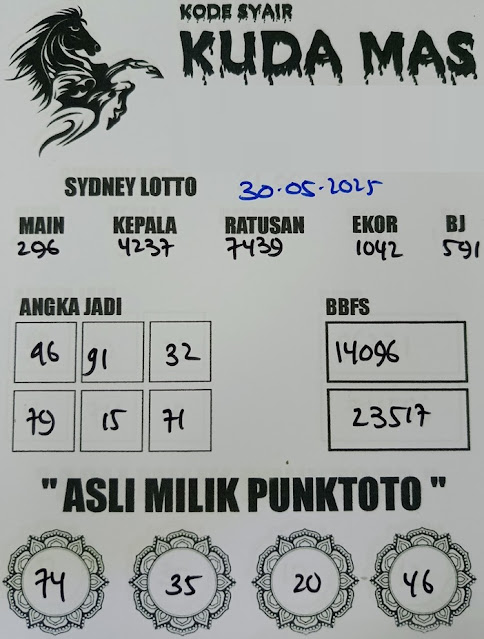 KODE SYAIR
KUDA MAS
SYDNEY LOTTO 30-05-2025
MAIN KEPALA RATUSAN EKOR BJ
296 4237 7439 1042 591
ANGKA JADI BBFS
96 91 32 14096
79 15 71 23517
"ASLI MILIK PUNKTOTO"
74 35 20 46